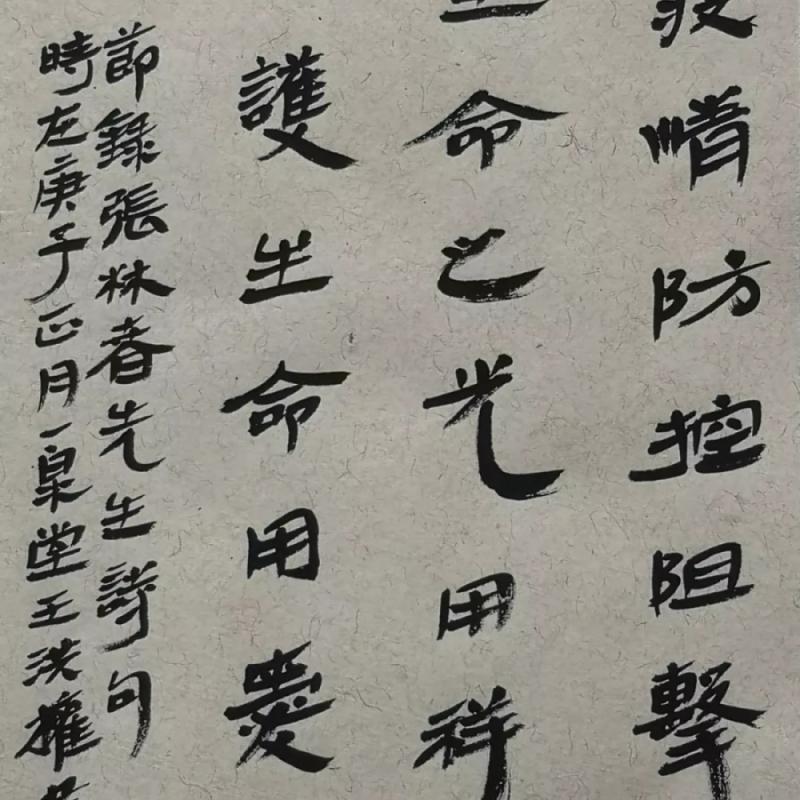 疫情防控阻擊
生命之光用祥
護生命用爱
節録張林春先生詩句
時在庚子正月一泉堂王洪權